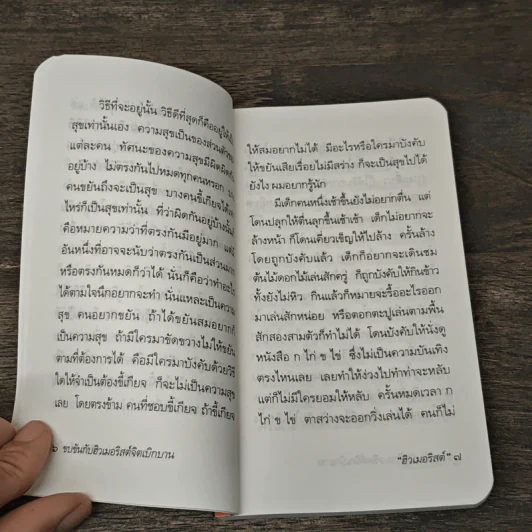 วิธีที่จะอยู่นั้น วิธีดีที่สุดก็คืออยู่ให้
สุขเท่านั้นเอง ความสุขเป็นของส่วนตัว
แต่ละคน ทัศนะของความสุขมีผิดกัน
อยู่บ้าง ไม่ตรงกันไปหมดทุกคนหรอก
คนขยันถึงจะเป็นสุข บางคนขี้เกียจได้
ไหร่ก็เป็นสุขเท่านั้น ที่ว่าผิดกันอยู่บ้างนั้น
คือหมายความว่าที่ตรงกันมีอยู่มาก
อันหนึ่งที่อาจจะนับว่าตรงกันเป็นส่วน
หรือตรงกันหมดก็ว่าได้ นั่นก็คือว่าทำ
ได้ตามใจนึกอยากจะทำ นั่นแหละเป็นความ
สุข คนอยากขยัน ถ้าได้ขยันสมอยากก็
เป็นความสุข ถ้ามีใครมาขัดขวางไม่ให้ขยัน
ตามที่ต้องการได้ คือมีใครมาบังคับด้วยวิธี
ใดให้จำเป็นต้องขี้เกียจ ก็จะไม่เป็นความสุข
เลย โดยตรงข้าม คนที่ชอบขี้เกียจ ถ้าขี้เกียจ
๖ ขบขันกับฮิวเมอริสต์จิตเบิกบาน
ให้สมอยากไม่ได้ มีอะไรหรือใครมาบังคับ
ให้ขยันเสียเรื่อยไม่มีสร่าง ก็จะเป็นสุขไปได้
ยังไง ผมอยากรู้นัก
มีเด็กคนหนึ่งเช้าขึ้นยังไม่อยากตื่น แต่
โดนปลุกให้ตื่นลุกขึ้นเช้าเช้า เด็กไม่อยากจะ
ล้างหน้า ก็โดนเคี่ยวเข็ญให้ไปล้าง ครั้นล้าง
โดยถูกบังคับแล้ว เด็กก็อยากจะเดินชม
ต้นไม้ดอกไม้เล่นสักครู่ ก็ถูกบังคับให้กินข้าว
ทั้งยังไม่หิว กินแล้วก็หมายจะรื้ออะไรออก
มาเล่นสักหน่อย หรือตอกตะปูเล่นตามพื้น
สักสองสามตัวก็ทำไม่ได้ โดนบังคับให้นั่งดู
หนังสือ ก ไก่ ข ไข่ ซึ่งไม่เป็นความบันเทิง
ตรงไหนเลย เลยทำให้ง่วงไปทำท่าจะหลับ
แต่ก็ไม่มีใครยอมให้หลับ ครั้นหมดเวลา ก
ไก่ ข ไข่ ตาสว่างจะออกวิ่งเล่นได้ คนก็ไม่
"ฮิวเมอริสต์" ๗